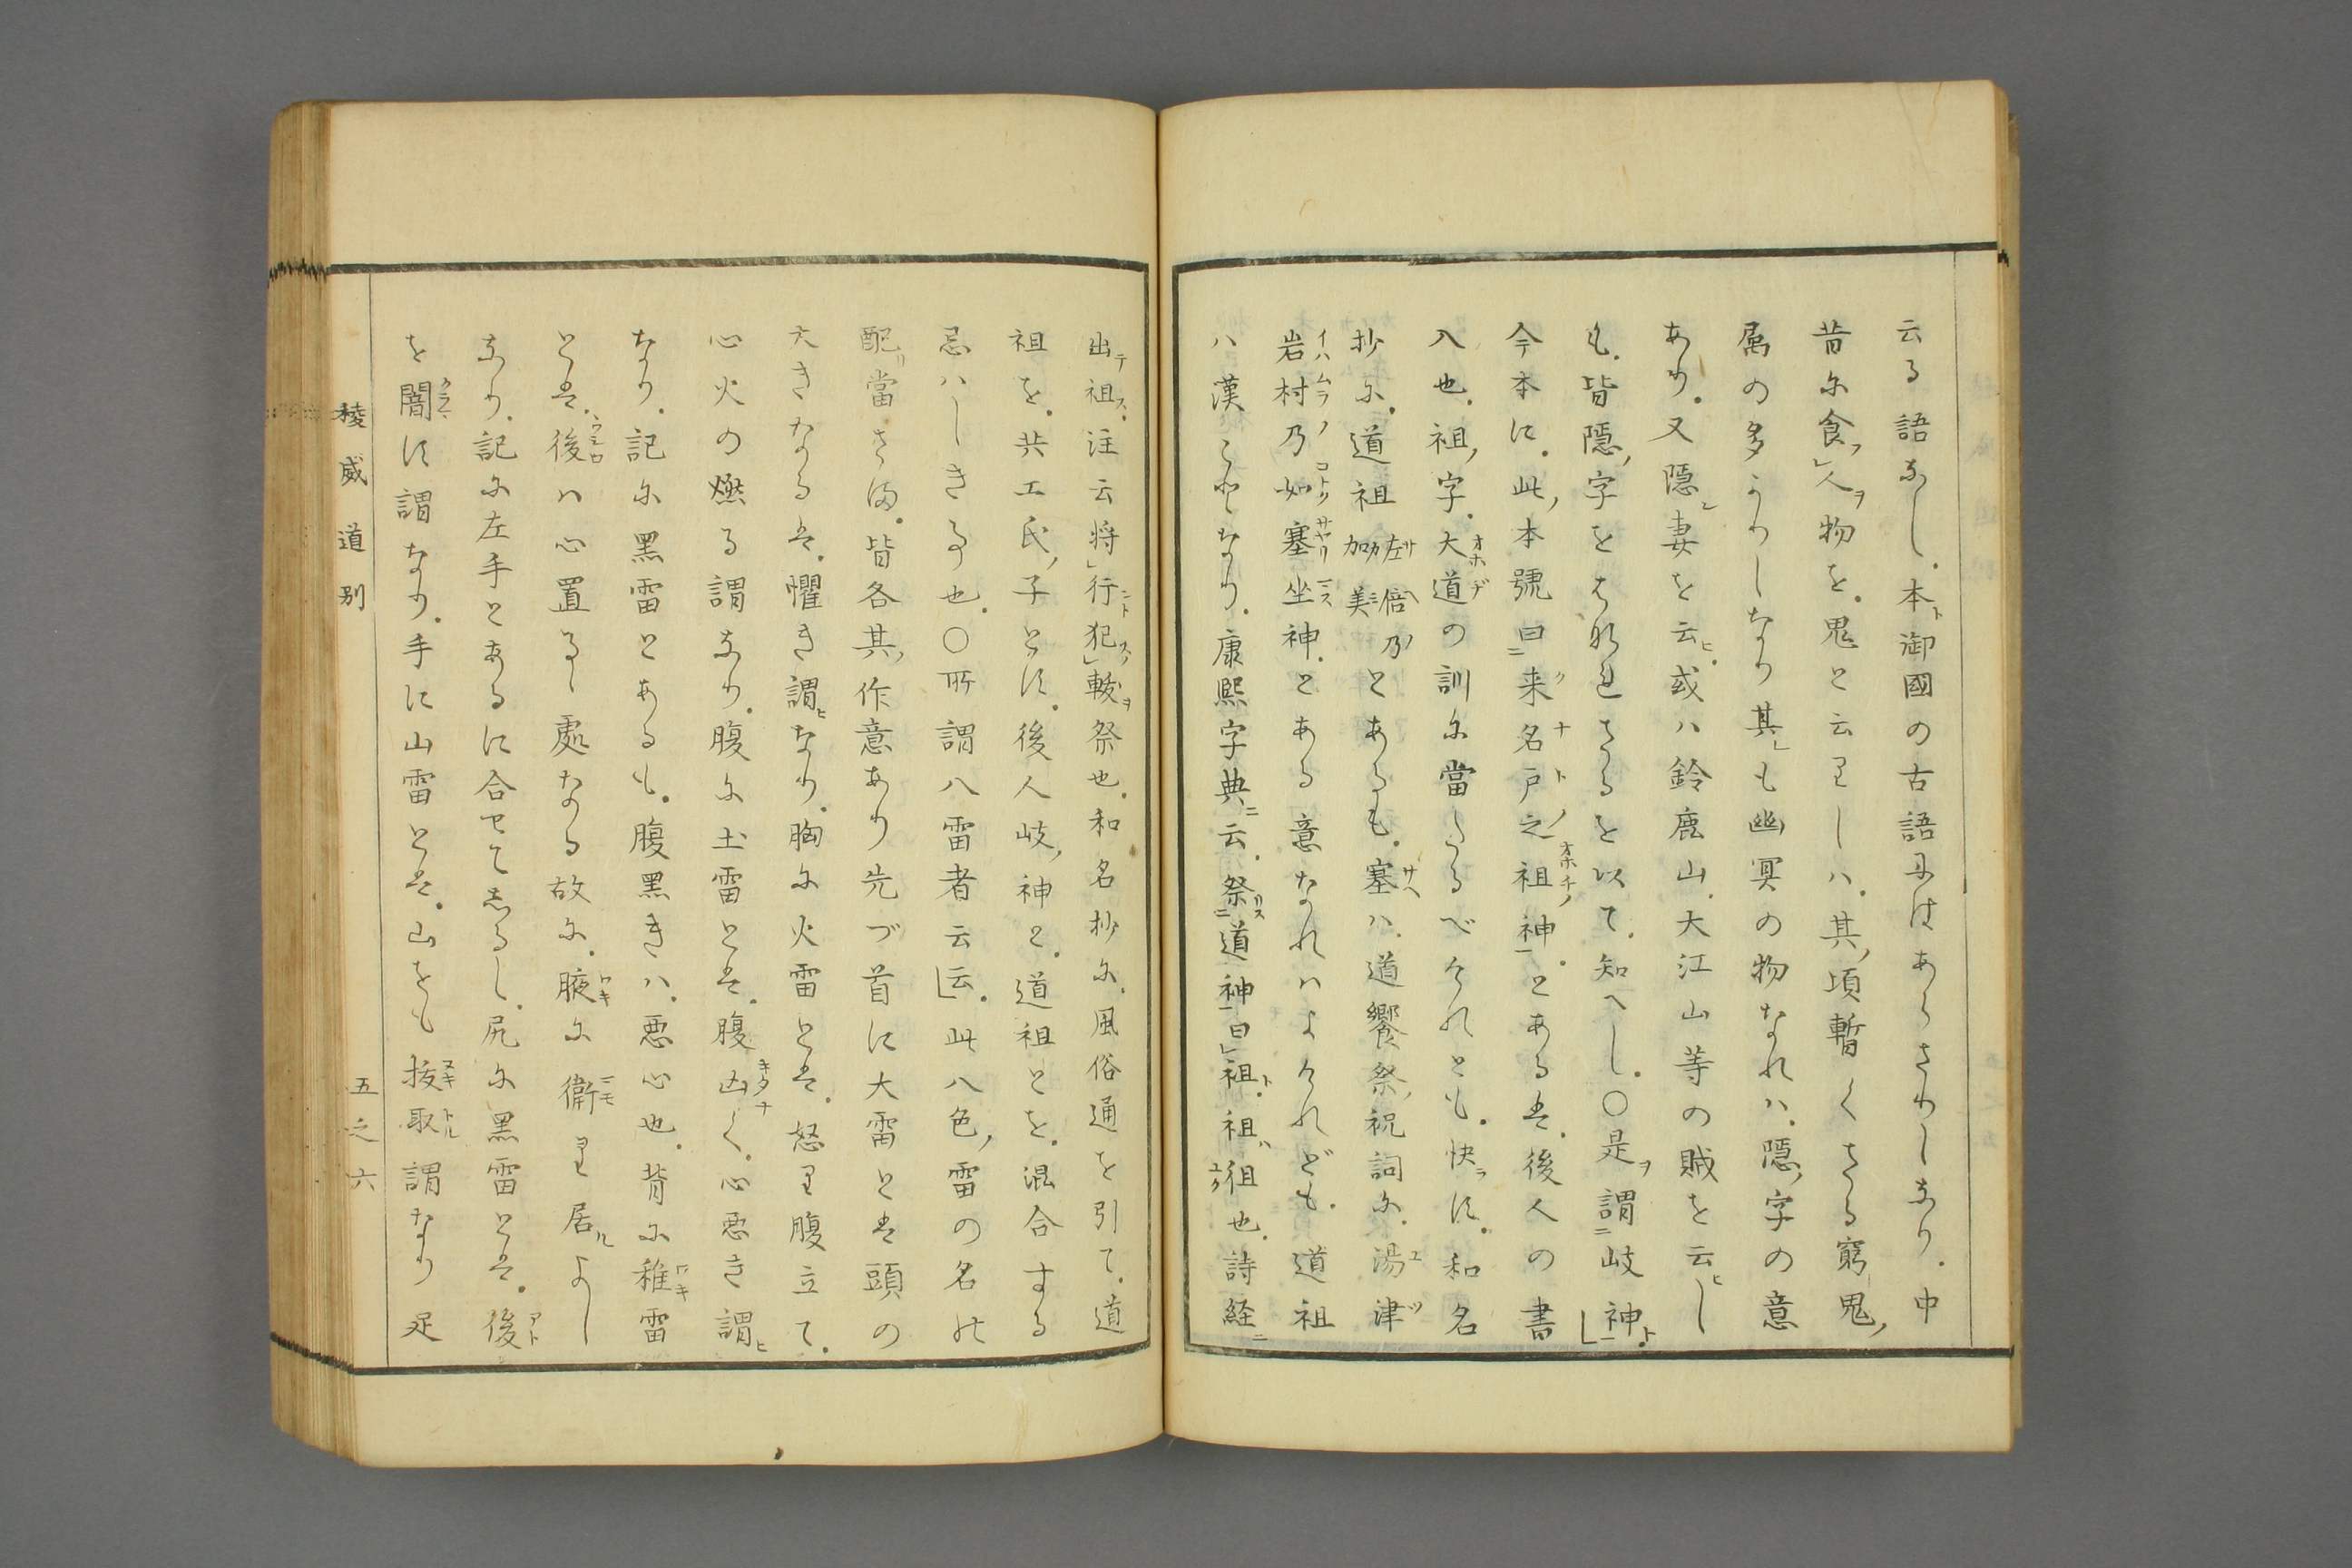 云る語なし。本ト御國の古語にはあらさりしなり。中
昔に食フレ人ヲ物を。鬼と云りしハ。其ノ頃暫くさる窮鬼ノ
属の多かりしなり其レも幽冥の物なれハ。隠ノ字の意
あり。又隠レ妻を云ヒ。或ハ鈴鹿山。大江山等の賊を云ヒし
も。皆隠ノ字をはなれさるを以て。知へし。〇是ヲ謂二岐神ト一。」
今本に。此ノ本號曰二来名戸之祖神一。とあるは。後人の書
入也。祖ノ字。大道の訓に當たるべけれとも。快ラに。和名
抄に。道祖左倍乃加美とあるも。塞ハ。道饗祭ノ祝詞に。湯津
岩村乃如塞坐神。とある意なれハよけれども。道祖
ハ漢ことなり。康熙字典ニ云。祭二道神一曰レ祖ト。祖ハ徂也。詩経ニ
出テ祖ス。注云将レ行ニト犯スノレ軷ヲ祭也。和名抄に。風俗通を引て。道
祖を。共工氏ノ子とに。後人岐ノ神と。道祖とを。混合する
忌ハしき事也。〇所謂八雷者云云」。此八色ノ雷の名の
配リ當さま。皆各其ノ作意あり先づ首に大雷とは頭の
大きなるは。懼き謂ヒなり。胸に火雷とは。怒り腹立て。
心火の燃る謂なり。腹に土雷とは。腹凶く。心悪き謂ヒ
なり。記に黒雷とあるも。腹黒きハ。悪心也。背に稚雷
とは。後ハ心置る處なる故に。腋に衛り居ルよし
なり。記に左手とあるに合せてしるし。尻に黒雷とは。後
を闇に謂なり。手に山雷とは。山をも抜取謂なり足
稜威道別
五之六